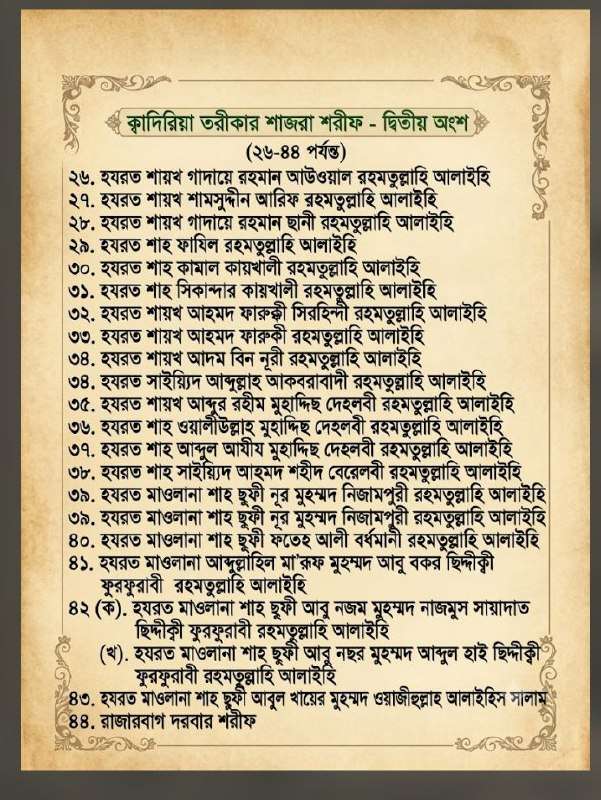 ক্বাদিরিয়া তরীকার শাজরা শরীফ - দ্বিতীয় অংশ
(২৬-৪৪ পর্যন্ত)
২৬. হযরত শায়খ গাদায়ে রহমান আউওয়াল রহমতুল্লাহি আলাইহি
২৭. হযরত শায়খ শামসুদ্দীন আরিফ রহমতুল্লাহি আলাইহি
২৮. হযরত শায়খ গাদায়ে রহমান ছানী রহমতুল্লাহি আলাইহি
২৯. হযরত শাহ ফাযিল রহমতুল্লাহি আলাইহি
৩০. হযরত শাহ কামাল কায়খালী রহমতুল্লাহি আলাইহি
৩১. হযরত শাহ সিকান্দার কায়খালী রহমতুল্লাহি আলাইহি
৩২. হযরত শায়খ আহমদ ফারুক্বী সিরহিন্দী রহমতুল্লাহি আলাইহি
৩৩. হযরত শায়খ আহমদ ফারুকী রহমতুল্লাহি আলাইহি
৩৪. হযরত শায়খ আদম বিন নূরী রহমতুল্লাহি আলাইহি
৩৪. হযরত সাইয়্যিদ আব্দুল্লাহ আকবরাবাদী রহমতুল্লাহি আলাইহি
৩৫. হযরত শায়খ আব্দুর রহীম মুহাদ্দিছ দেহলবী রহমতুল্লাহি আলাইহি
৩৬. হযরত শাহ ওয়ালীউল্লাহ মুহাদ্দিছ দেহলবী রহমতুল্লাহি আলাইহি
৩৭. হযরত শাহ আব্দুল আযীয মুহাদ্দিছ দেহলবী রহমতুল্লাহি আলাইহি
৩৮. হযরত শাহ সাইয়্যিদ আহমদ শহীদ বেরেলবী রহমতুল্লাহি আলাইহি
৩৯. হযরত মাওলানা শাহ ছুফী নূর মুহম্মদ নিজামপুরী রহমতুল্লাহি আলাইহি
৩৯. হযরত মাওলানা শাহ ছুফী নূর মুহম্মদ নিজামপুরী রহমতুল্লাহি আলাইহি
৪০. হযরত মাওলানা শাহ ছুফী ফতেহ আলী বর্ধমানী রহমতুল্লাহি আলাইহি
৪১. হযরত মাওলানা আব্দুল্লাহিল মা'রূফ মুহম্মদ আবু বকর ছিদ্দীক্বী
ফুরফুরাবী রহমতুল্লাহি আলাইহি
৪২ (ক). হযরত মাওলানা শাহ ছুফী আবু নজম মুহম্মদ নাজমুস সায়াদাত
ছিদ্দীক্বী ফুরফুরাবী রহমতুল্লাহি আলাইহি
(খ). হযরত মাওলানা শাহ ছুফী আবু নছর মুহম্মদ আব্দুল হাই ছিদ্দীক্বী
ফুরফুরাবী রহমতুল্লাহি আলাইহি
৪৩. হযরত মাওলানা শাহ ছুফী আবুল খায়ের মুহম্মদ ওয়াজীহুল্লাহ আলাইহিস সালাম
৪৪. রাজারবাগ দরবার শরীফ